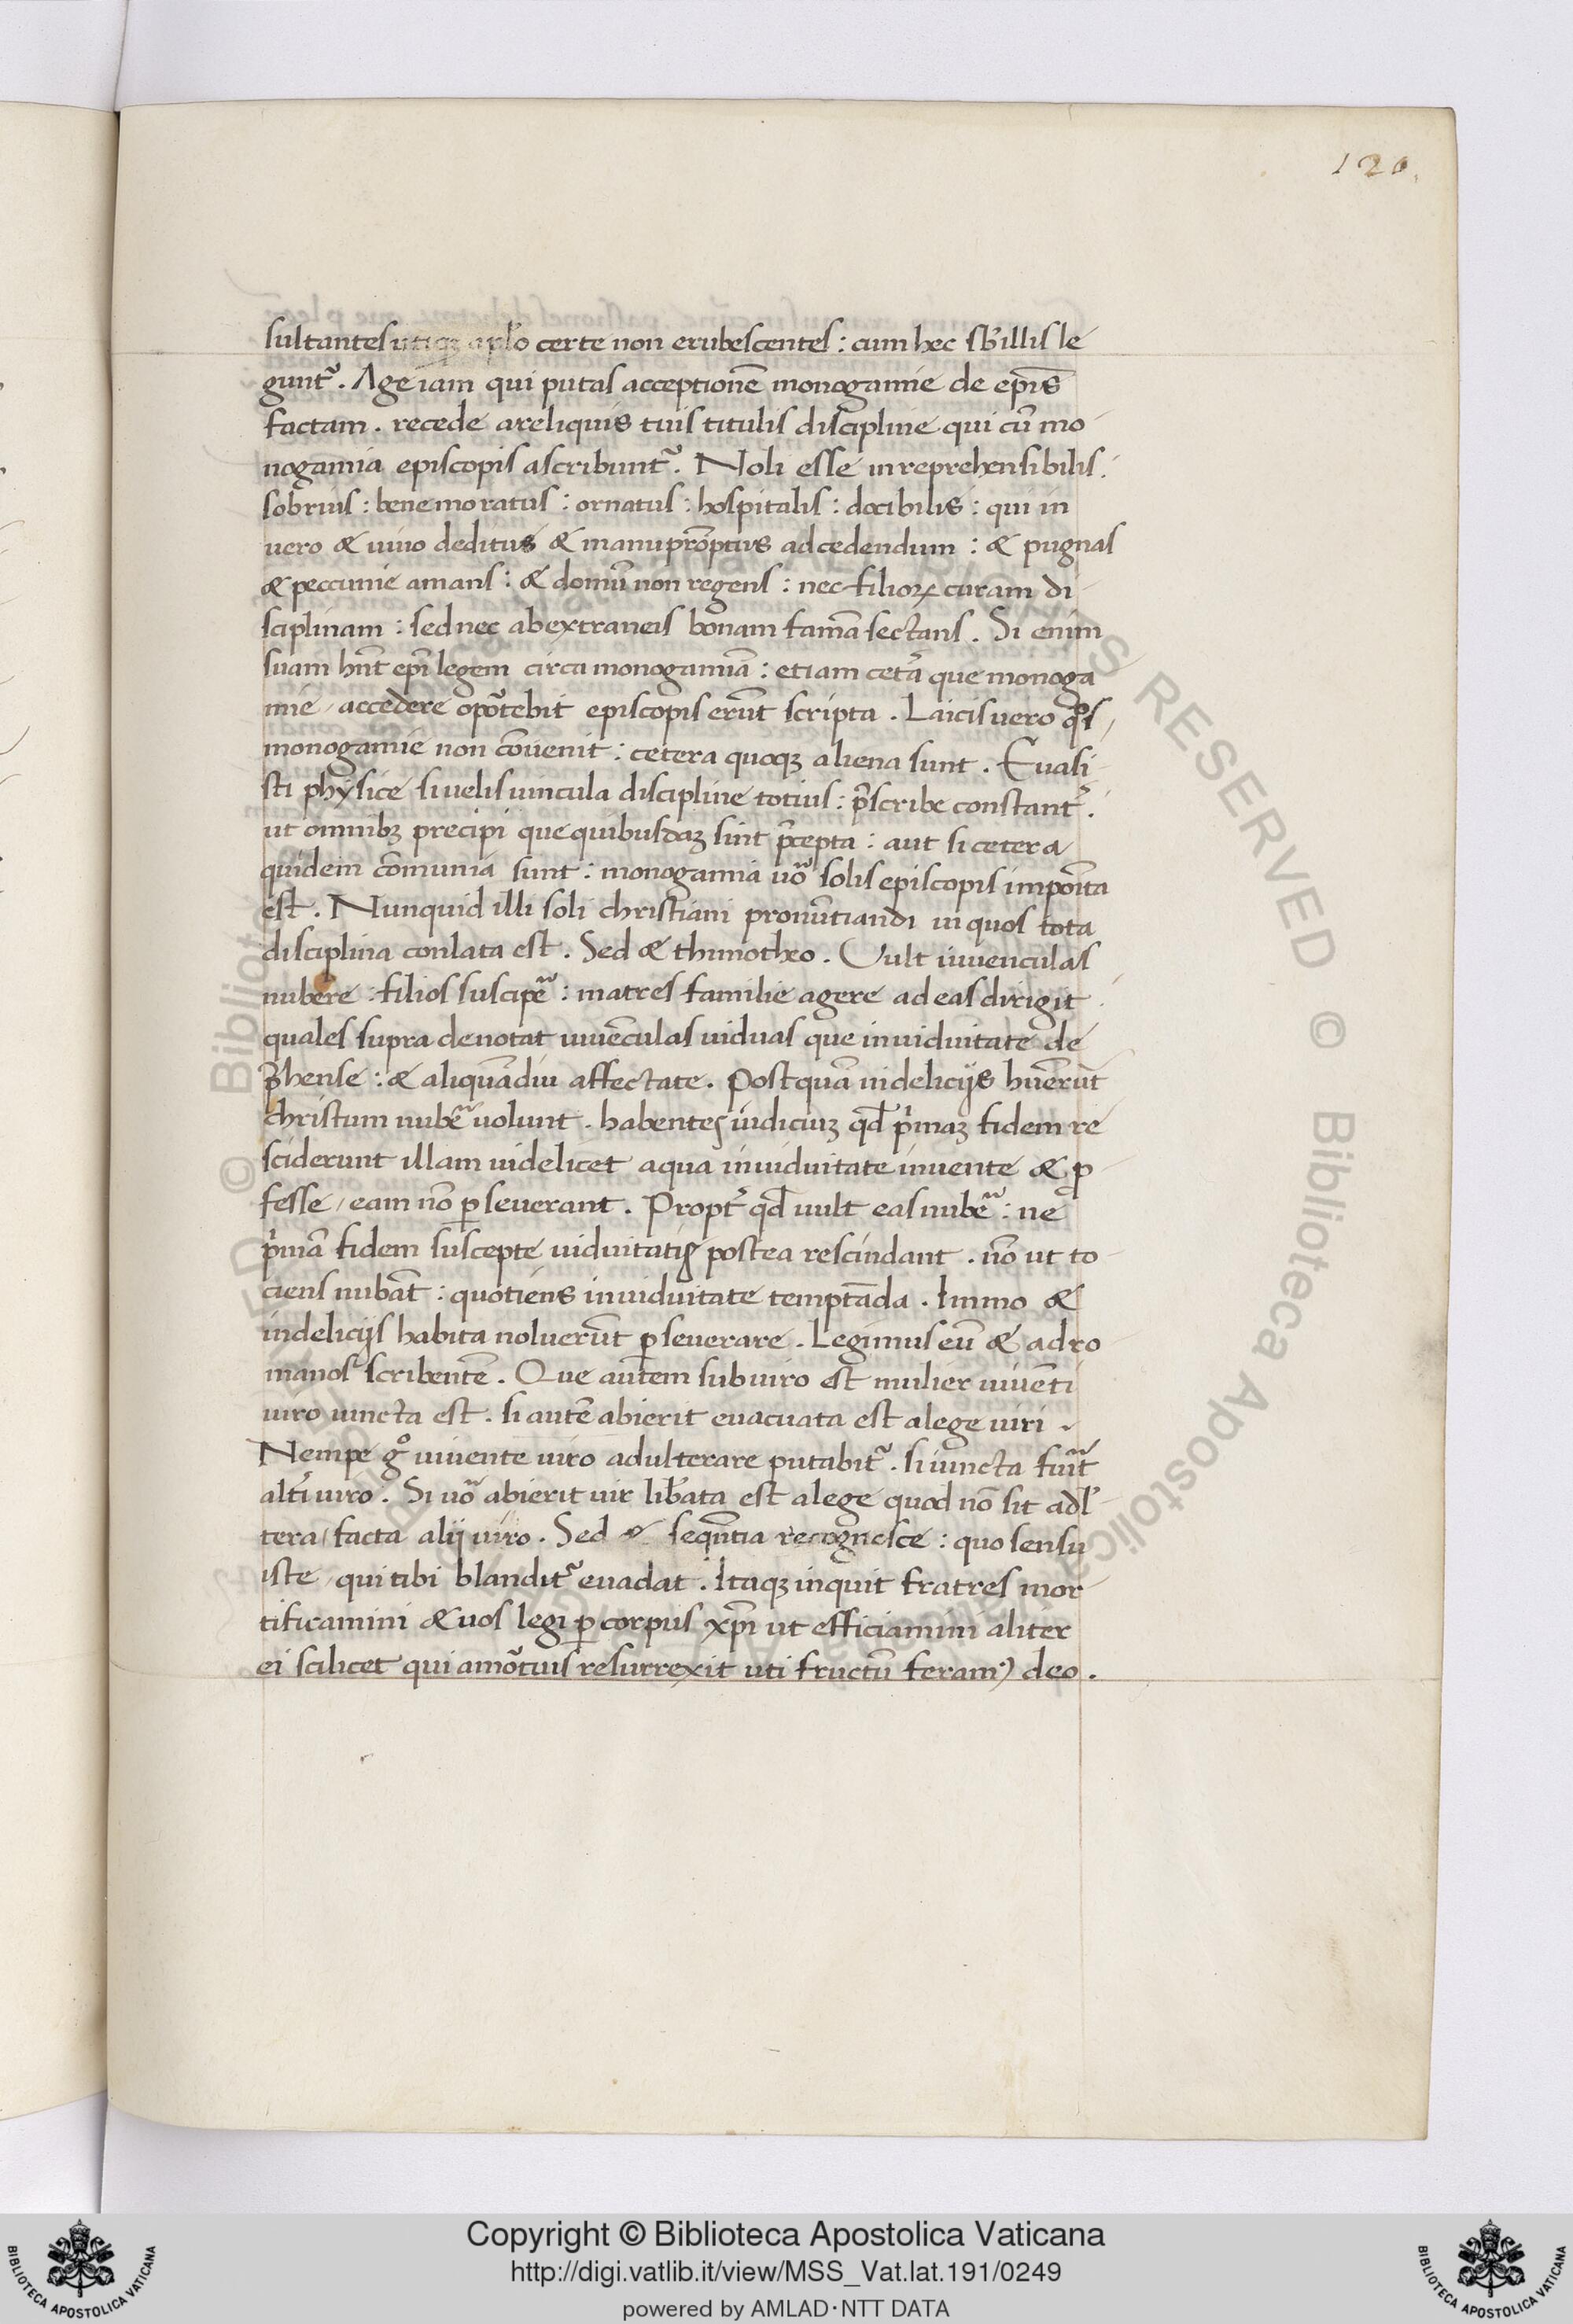 120.
sultantes utiqꝫ apl'o certe non erubescentes : cum hec sb' illis le
gunt᷑ . Age iam qui putas acceptionē monogamie de ep̄is
factam . recede areliquis tuis titulis discipline qui cū mo
nogamia episcopis ascribunt᷑ . Noli esse inreprehensibilis .
sobrius : bene moratus : ornatus : hospitalis : docibilis : qui in
uero & uino deditus & manuprōptus adcedendum : & pugnas
& peccunie amans : & domū non regens : nec filioꝝ curam di
sciplinam : sed nec abextraneis bonam famā sectans . Si enim
suam hn̄t ep̄i legem circa monogamiā : etiam cet᷑a que monoga
mie / accedere opo᷑tebit episcopis erūt scripta . Laicis uero qͦs /
monogamie non cōuenit : cetera quoqꝫ aliena sunt . Euasi
sti physice si uelis uincula discipline totius : p̄scribe constant᷑ .
ut omnibꝫ precipi que quibusdaꝫ sint p̄cepta : aut si cetera
quidem cōmunia sunt : monogamia uo᷑ solis episcopis imposita
est . Nunquid illi soli christiani pronūtiandi in quos tota
disciplina conlata est . Sed & thimotheo . Vult iuuenculas
nubere : filios suscipe᷑ : matres familie agere ad eas dirigit .
quales supra denotat iuuēculas uiduas que inuiduitate de
p̄hense : & aliquādiu affectate . Postquā indelicijs huerūt
christum nube᷑ uolunt . habentes iudiciuꝫ qd̄ p'maꝫ fidem re
sciderunt illam uidelicet aqua inuiduitate inuente & ꝓ
fesse / eam nō ꝑseuerant . Propt᷑ qd̄ uult eas nube᷑ : ne
p'mā fidem suscepte uiduitatis postea rescindant . nō ut to
ciens nubāt : quotiens inuiduitate temptāda . Immo &
indelicijs habita noluerūt ꝑseuerare . Legimus eū & adro
manos scribentē . Que autem subuiro est mulier uiuēti
uiro uincta est . si autē abierit euacuata est alege uiri .
Nempe gͦ uiuente uiro adulterare putabit᷑ . si iuncta fu᷑it
alt'i uiro . Si uo᷑ abierit uir lib'ata est alege quod nō sit adl'
tera / facta alij uiro . Sed & seqūtia recognosce : quo sensu
iste / qui tibi blandit᷑ euadat . Itaqꝫ inquit fratres mor
tificamini & uos legi ꝑ corpus xp̄i ut efficiamini aliter
ei scilicet qui amo᷑tuis resurrexit uti fructū feram᷒ deo .
© Biblioteca Apostolica
RESERVED
Copyright © Biblioteca Apostolica Vaticana
http://digi.vatlib.it/view/MSS_Vat.lat.191/0249
powered by AMLAD·NTT DATA
BIBLIOTECA APOSTOLICA VATICANA
BIBLIOTECA APOSTOLICA VATICANA